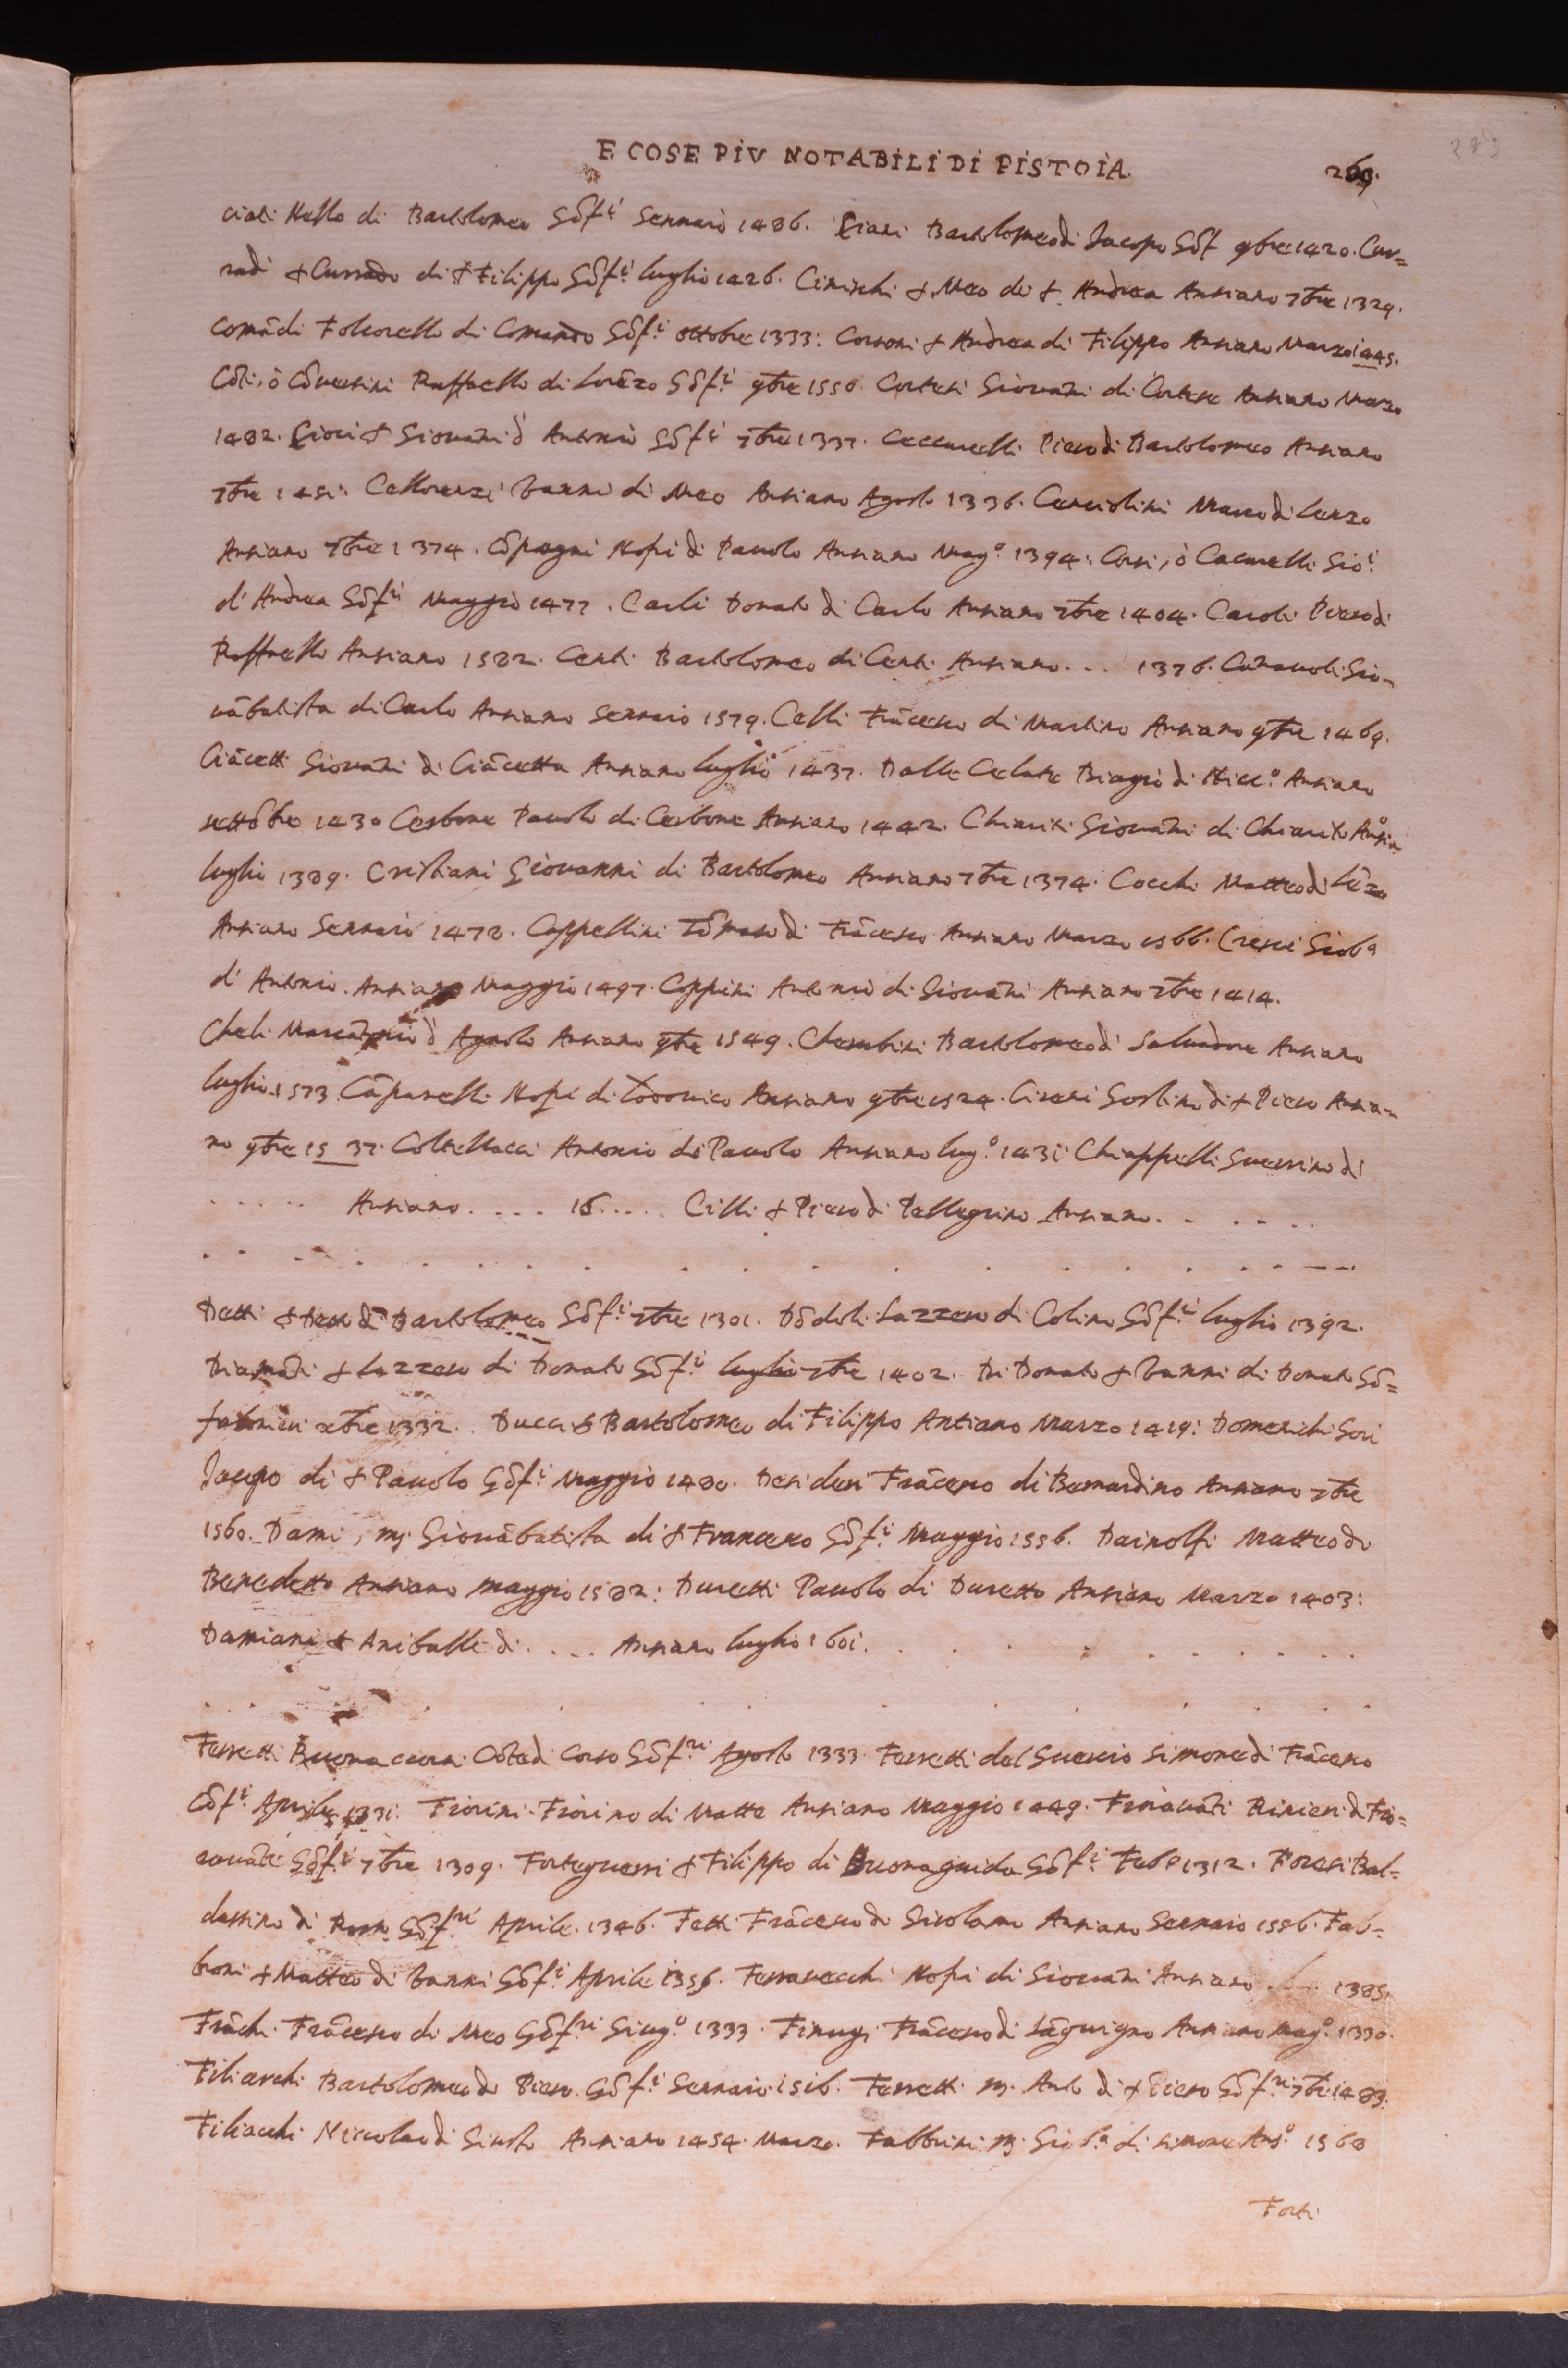 E COSE PIV NOTABILI DI PISTOIA. 269.
283
ciati Nello di Bartolomeo Gōf.ri Gennaio 1486. Ciani Bartolomeo di Jacopo Gōf 9bre 1420. Cur=
radi & Currado di & Filippo Gōf.ri luglio 1426. & Meo di & Andrea Antiano 7bre 1329.
Comādi di Comando Gōf.ri ottobre 1333: Corsoni & Andrea di Filippo Antiano Marzo 1445.
Cōti, ò Cōversini Raffaello di Lorēzo Gōf.ri 9bre 1556. Cortesi Giovāni di Cortese Antiano Marzo
1482. Cioci & Giovāni d' Antonio Gōf.ri 7bre 1337. Ceccarelli Piero di Bartolomeo Antiano
7bre 1451: Cellorenzi Vanni di Meo Antiano Agosto 1336. Cenciolini Marco di Lenzo
Antiano 7bre 1374. Cōpagni Nofri di Pauolo Antiano Mag.o 1394: Corsi, ò Cacarelli Gio:
d' Andrea Gōf.ri Maggio 1477. Carli Donato di Carlo Antiano 7bre 1404. Caroli Piero di
Raffaello Antiano 1582. Centi Bartolomeo di Centi Antiano. . . . 1376. Gio=
vābatista di Carlo Antiano Gennaio 1579. Celli Frācesco di Martino Antiano 9bre 1469.
Ciācetti Giovāni di Ciācetta Antiano luglio 1437. Dalle Celate Biagio di Nicc.o Antiano
settēbre 1430 Cerbone Pauolo di Cerbone Antiano 1442. Chiariti Giovāni di Chiarito Antia.o
luglio 1389. Cristiani Giovanni di Bartolomeo Antiano 7bre 1374. Cocchi Matteo di Lēzo
Antiano Gennaio 1472. Cappellini Tōmaso di Frācesco Antiano Marzo 1566. Cresci Giob.a
d' Antonio. Antiano Maggio 1497. Coppini Antonio di Giovāni Antiano 7bre 1414.
Cheli Marcātonio d' Agnolo Antiano 9bre 1549. Cherubini Bartolomeo di Salvadore Antiano
luglio. 1573 Cāpanelli Nofri di Lodovico Antiano 9bre 1524. di & Piero Antia=
no 9bre 1537. Coltellacci Antonio di Pauolo Antiano lug.o 1431: Chiappelli Guerrino di
. . . . . Antiano. . . . . 16. . . . . Cilli & Piero di Pellegrino Antiano. . . . . .
Detti & Detto di Bartolomeo Gōf.ri 7bre 1301. Dōdoli Lazzero di Colino Gōf.ri luglio 1392.
Diamāti & Lazzero di Donato Gōf.ri luglio 7bre 1402. Di Donato & Vanni di Donato Gō=
falonieri xbre 1332. Ducci & Bartolomeo di Filippo Antiano Marzo 1419: Domenichi Gori
Jacopo di & Pauolo Gōf.ri Maggio 1480. Desideri Frācesco di Bernardino Antiano 7bre
1560. Dami, m. Giovābatista di & Francesco Gōf.ri Maggio 1556. Dainolfi Matteo di
Benedetto Antiano maggio 1582: Duretti Pauolo di Duretto Antiano Marzo 1403:
Damiani & Aniballe di. . . . Antiano luglio 1601. . . . . . . . .
Ferretti Buonaccorsi di Corso Gōf.ri Agosto 1333. Ferretti del Guercio Simone di Frācesco
Gōf.ri Aprile 1331. Fiorini Fiorino di Matte Antiano Maggio 1449. Rinieri di Fio=
ravāte Gōf.ri 7bre 1309. Forteguerri & Filippo di Buonaguida Gōf.ri Feb.o 1312. Foresi Bal=
dassino di Gōf.ri Aprile. 1346. Fetti Frācesco di Girolamo Antiano Gennaio 1556. Fab=
broni & Matteo di Vanni Gōf.ri Aprile 1356. Ferravecchi Nofri di Giovāni Antiano . . . . 1385.
Frāchi Frācesco di Meo Gōf.ri Giug.o 1333. Finugi Frācesco di Sāguigno Antiano mag.o 1330.
Filiarchi Bartolomeo di Piero. Gōf.ri Gennaio 1516. Ferretti m. Anto di & Piero Gōf.ri 7bre 1483.
Filiacchi Niccolao di Giusto Antiano 1454. Marzo. Fabbrini m. Giob.a di Simone Ans.o 1560
Forti